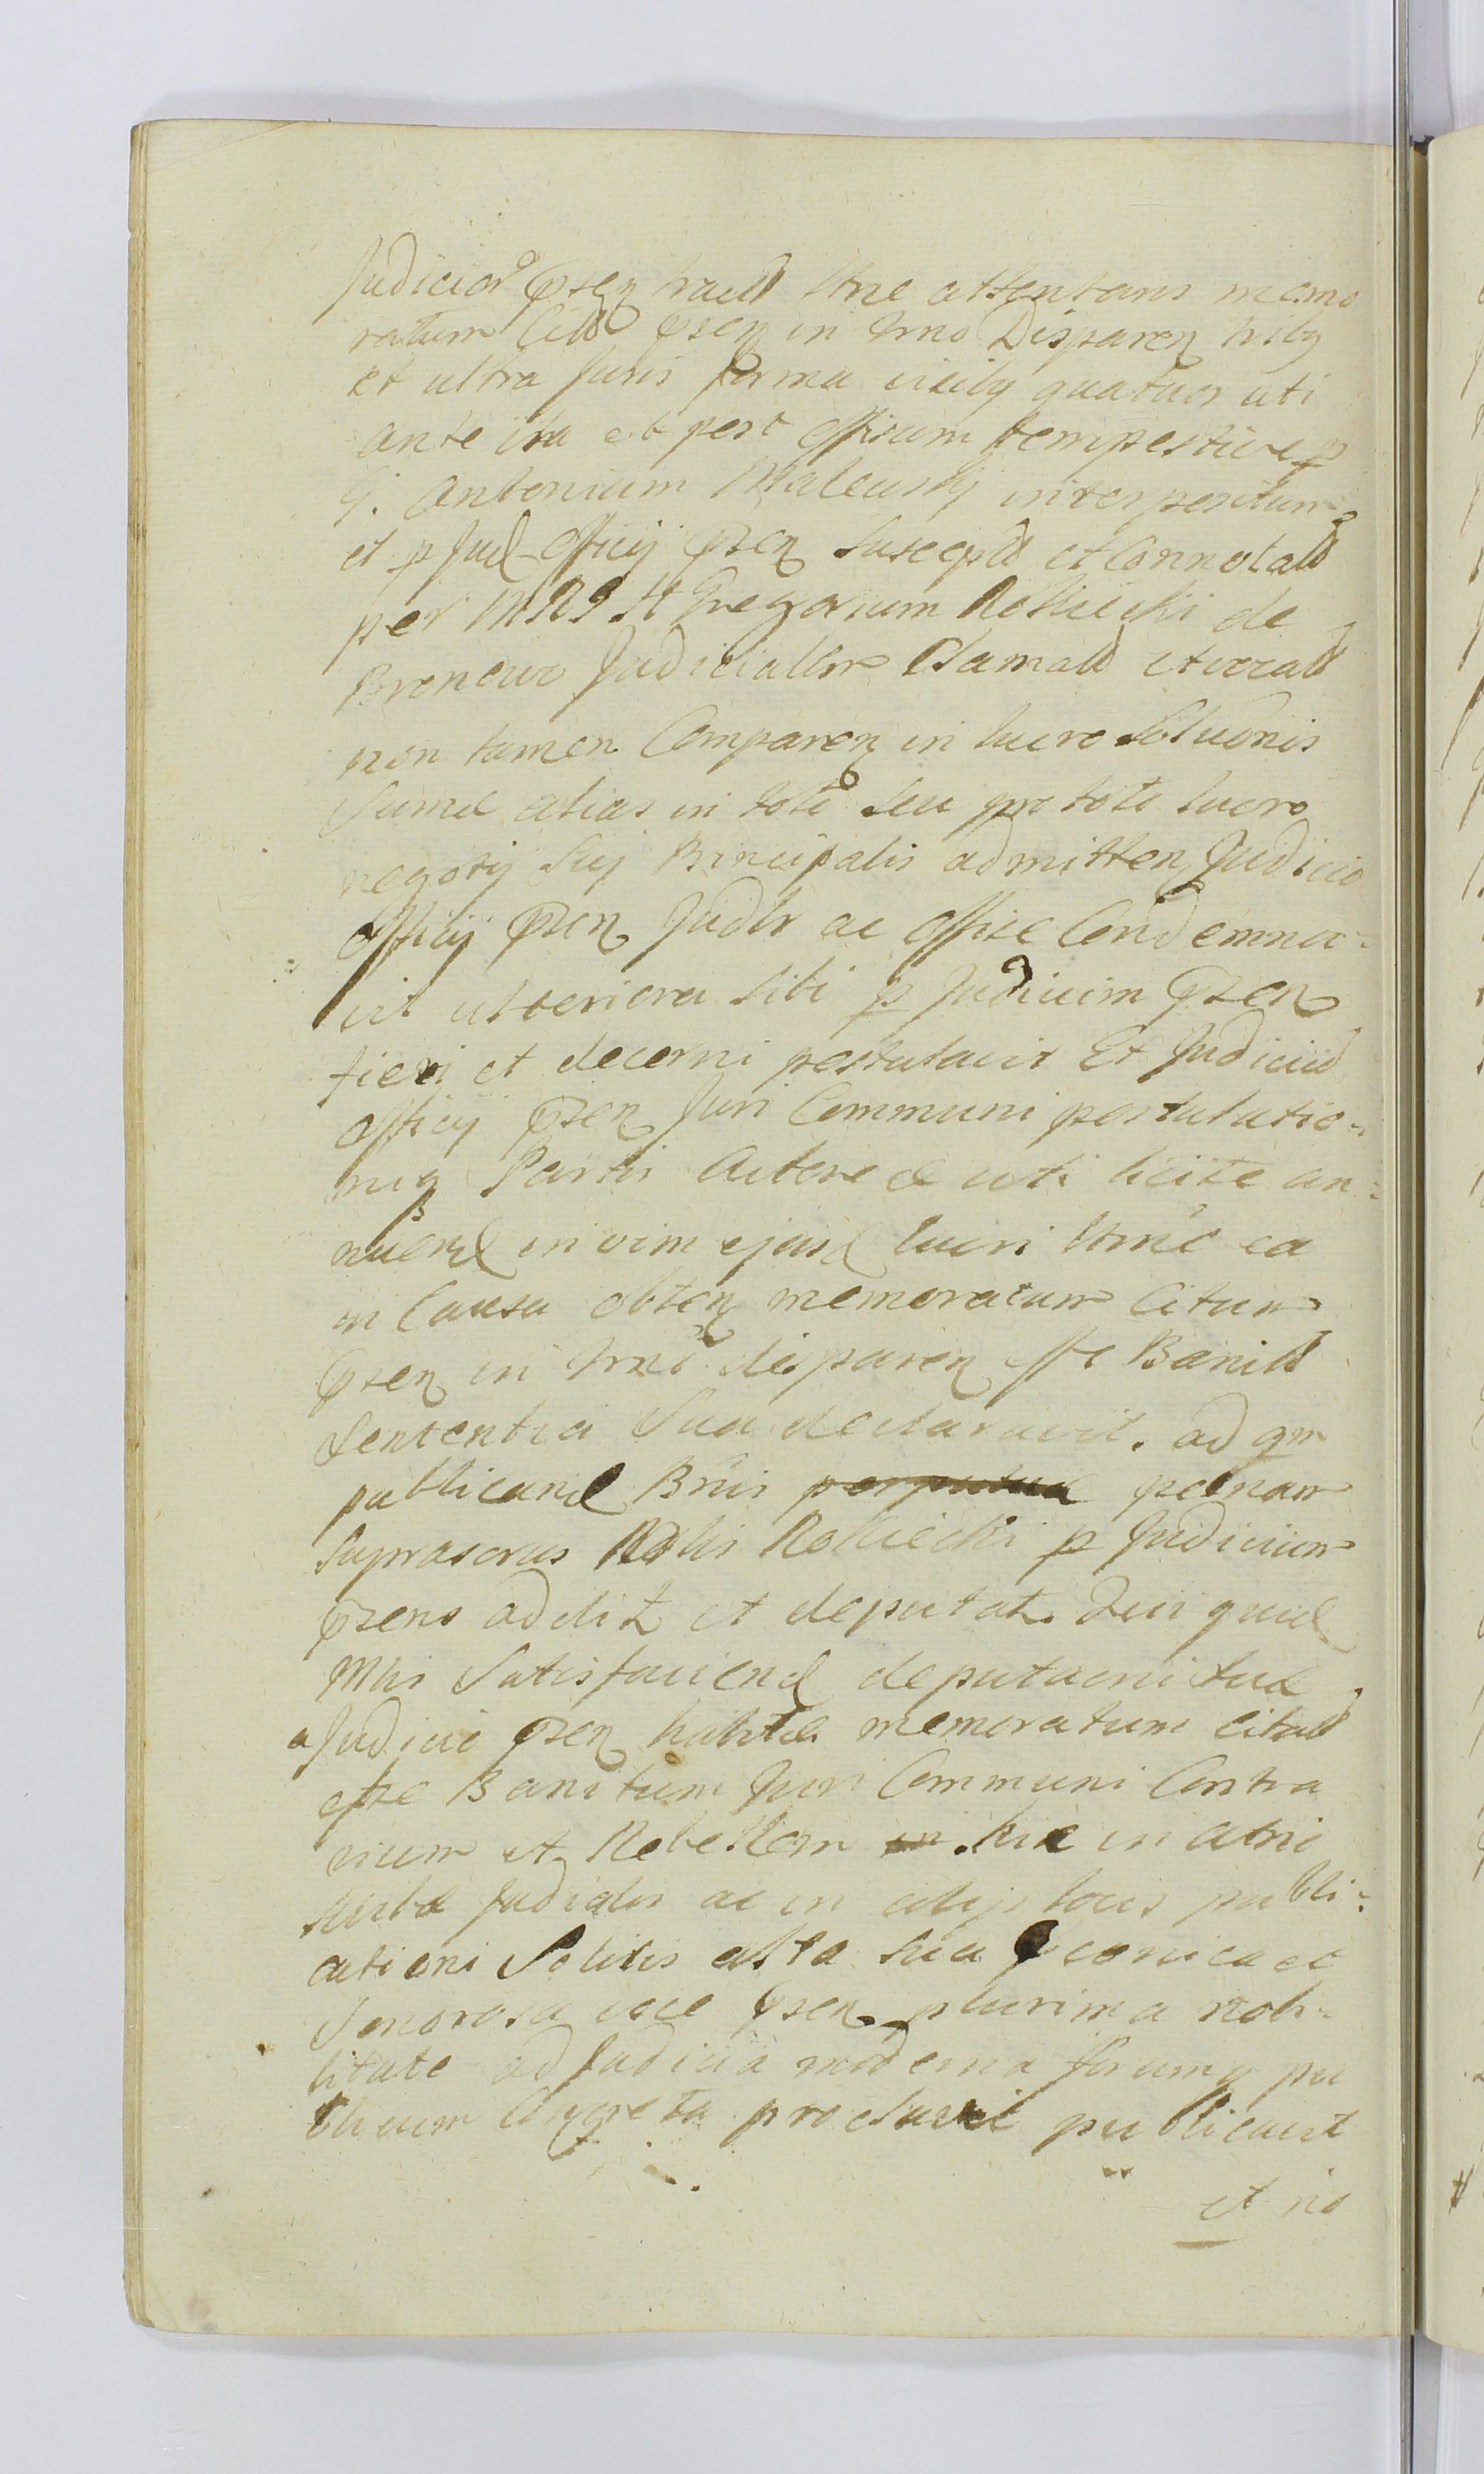 Judicior psen haud Ittne attentans memo
ratum Citt psen in Trno Disparen trib9
et ultra Juris forma vicib9 quatuor uti
ante ita et post offisum tempestive p
G. Antonium Malewsky interpositum
et p Jud Officij psen suscept et Connotatt
per Gregorium Rokicki de
Judicialtr Clamatt
non tamen Comparen in lucro Solutionis
Sumæ alias in toto seu pro toto lucro
negotij Suj Principalis admitten Judicio
Officij psen Judltr ac Offise Condemna=
vit ulteriora sibi p Judicium psen
fieri et decerni postulavit Et Judiciu
Officij psen Juri Communi postulatio=
niq Partis Actoreæ uti licite an=
nuend in vim ejusd lucri Ittnc ea
in Causa obten memoratum Citum
psen in Trno disparen Banitt
Sententia Sua declaravit. ad qm
publicand Bnis perpetuæ pœnam
suprascrus Rokicki p Judicium
psens additt et deputat. Qui quid
Mtis Satisfaciend deputaoni suæ
a Judicio psen habitæ memoratum citatt
esse Banitum Juri Communi Contra
rium et Rebellem in hic in atrio
stubæ Judialis ac in alijs locis publi=
cationi Solitis alta sua et
Sonorosa voce psen plurima nobi=
litate ad Judicia moderna forumq pu
blicum Congreta publicavit
et no